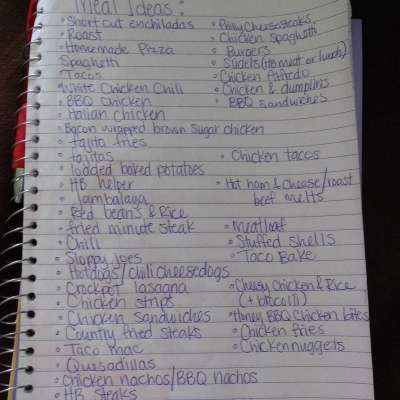 Meal Ideas:
• Shortcut enchiladas • Philly Cheesesteaks
• Roast • Chicken Spaghetti
• Homemade Pizza • Burgers
Spaghetti • Sliders (HB meat or lunch)
• Tacos • Chicken Alfredo
• White Chicken Chili • Chicken & dumplins
• BBQ Chicken • BBQ Sandwiches
• Italian chicken
• Bacon wrapped brown sugar chicken
• fajita fries
• fajitas • Chicken tacos
• loaded baked potatoes
• HB helper • Hot ham & Cheese/roast
• Jambalaya beef melts
• Red beans & Rice
• fried minute steak • Meatloaf
• Chili • Stuffed Shells
• Sloppy Joes • Taco Bake
• Hotdogs/chili cheesedogs
• Crockpot lasagna • Cheesy Chicken & Rice
• Chicken strips (+ broccoli)
• Chicken Sandwiches • Honey BBQ Chicken bites
• Country fried steaks • Chicken fries
• Taco Mac • Chicken nuggets
• Quesadillas
• Chicken nachos/BBQ nachos
• HB Steaks